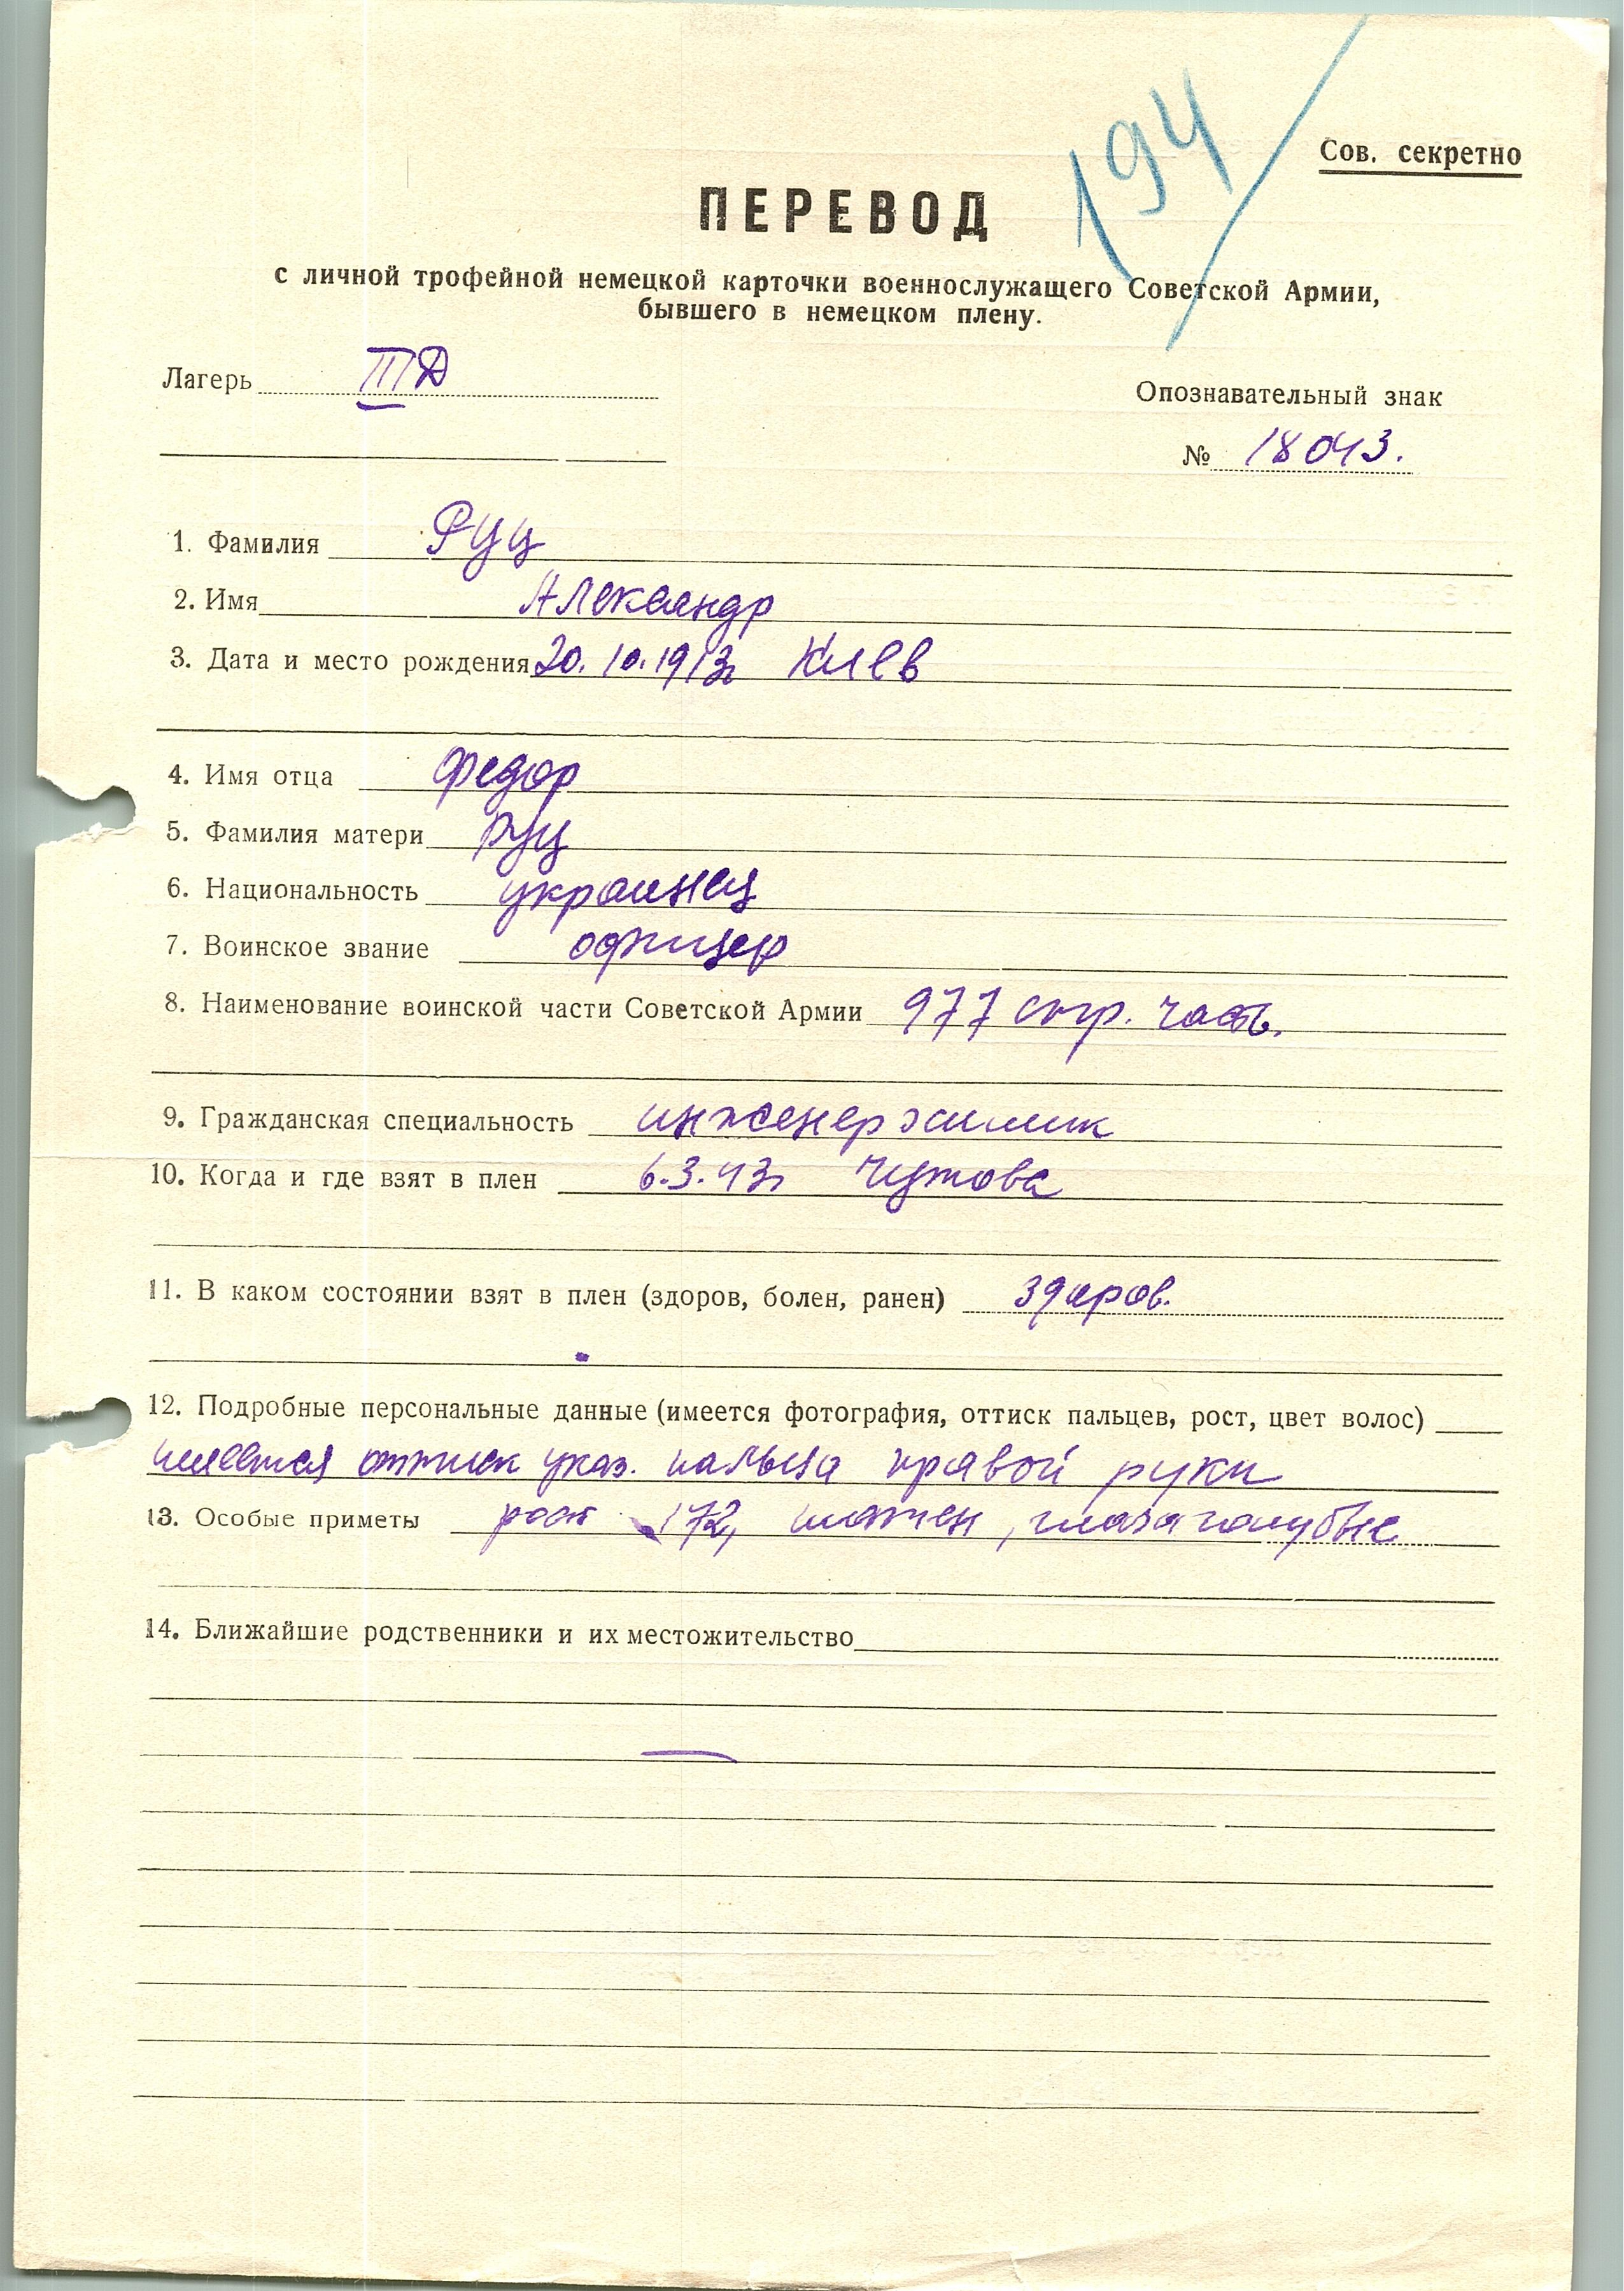 194
Сов. секретно
ПЕРЕВОД
с личной трофейной немецкой карточки военнослужащего Советской Армии,
бывшего в немецком плену.
Лагерь III Д
Опознавательный знак
№ 18043.
1. Фамилия Руц
2. Имя Александр
3. Дата и место рождения 20.10.1913г Киев
4. Имя отца Федор
5. Фамилия матери Руц
6. Национальность украинец
7. Воинское звание офицер
8. Наименование воинской части Советской Армии 977 стр. часть.
9. Гражданская специальность инженер химик
10. Когда и где взят в плен 6.3.43г
11. В каком состоянии взят в плен (здоров, болен, ранен) здоров.
12. Подробные персональные данные (имеется фотография, оттиск пальцев, рост, цвет волос)
имеется оттиск указ. пальца правой руки
13. Особые приметы рост 172, шатен, глаза голубые
14. Ближайшие родственники и их местожительство
—